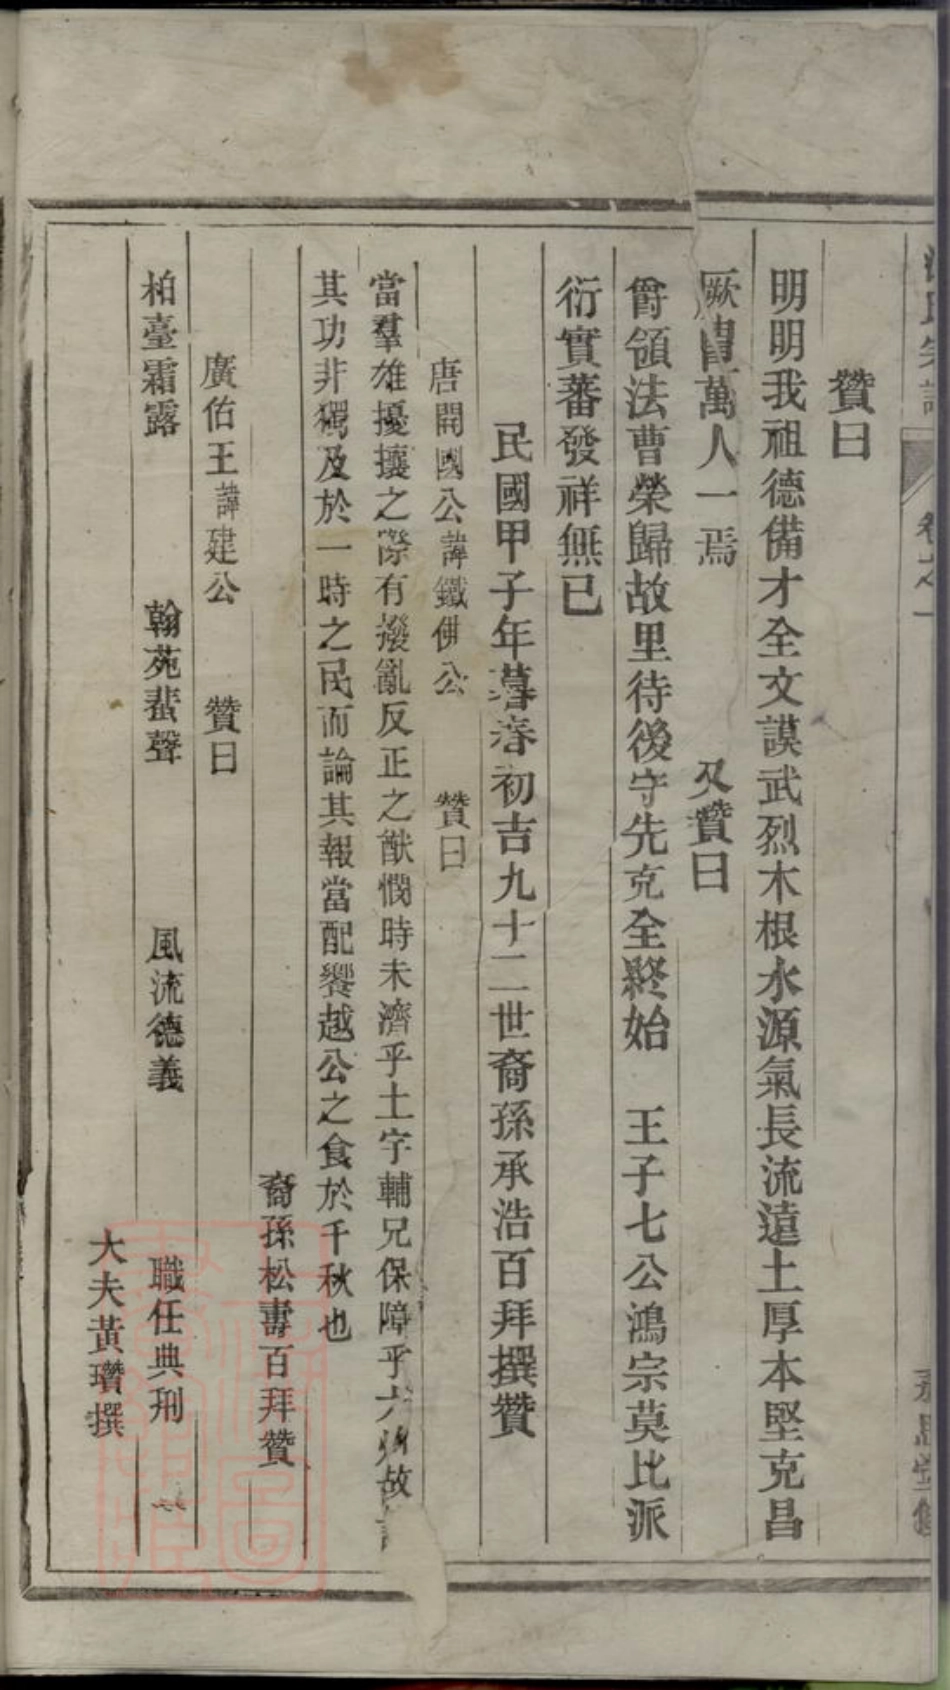 卷之一
贊曰
明明我祖德備才全文謨武烈木根水源氣長流遠土厚本堅克昌
厥冑萬人一焉　又贊曰
爵領法曹榮歸故里待後守先克全終始　王子七公鴻宗莫比派
衍實蕃發祥無已
民國甲子年暮春初吉九十二世裔孫承浩百拜撰贊
唐開國公諱鐵佛公　贊曰
當羣雄擾攘之際有撥亂反正之猷憫時未濟乎土宇輔兄保障乎六州故
其功非獨及於一時之民而論其報當配饗越公之食於千秋也
裔孫松壽百拜贊
廣佑王諱建公　贊曰
柏臺霜露　翰苑蜚聲　風流德義　職任典刑
大夫黃瓚撰